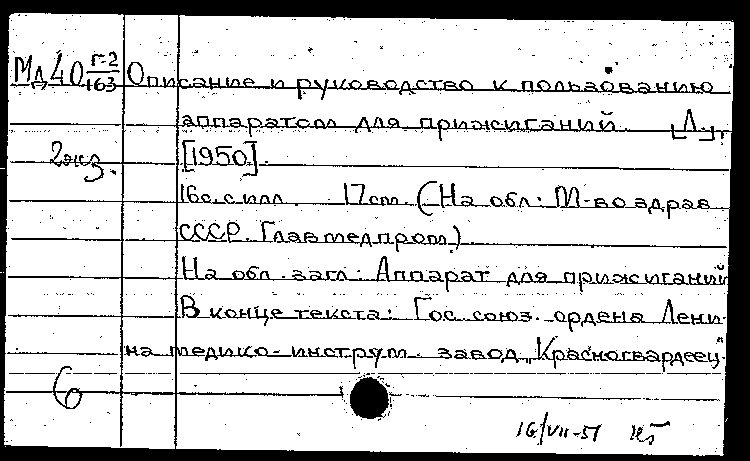 Мд 40 Г-2/163 Описание и руководство к пользованию
аппаратом для прижиганий. [Л.],
2 экз. [1950].
16 с. с илл. 17 см. (На обл.: М-во здрав.
СССР. Главмедпром)
На обл. загл.: Аппарат для прижиганий
В конце текста: Гос. союз. ордена Лени-
на медико-инструм. завод „Красногвардеец"
6
16/VII-51